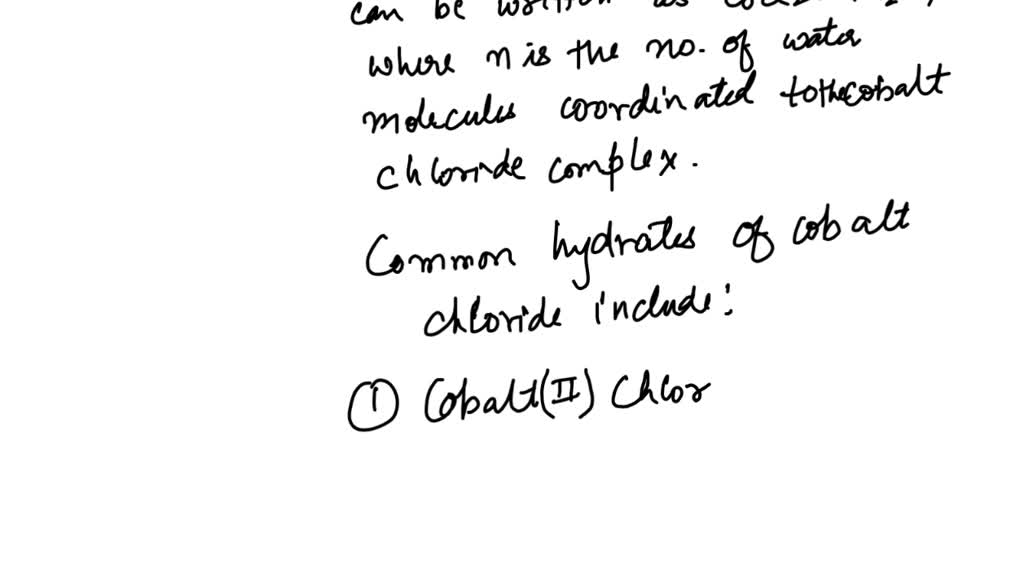 can be written as
where n is the no. of water
molecules coordinated to the cobalt
chloride complex.
Common hydrates of cobalt
chloride include:
① Cobalt(II) Chlor